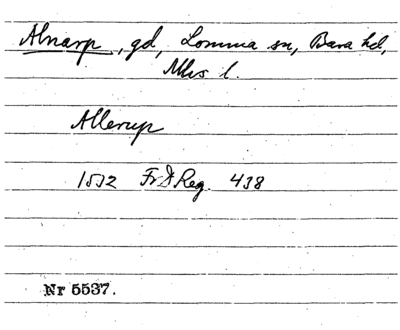 Alnarp, gd, Lomma sn, Bara hd,
Mhs l.
Allerup
1532 Fr.D Reg. 438
Nr 5537.